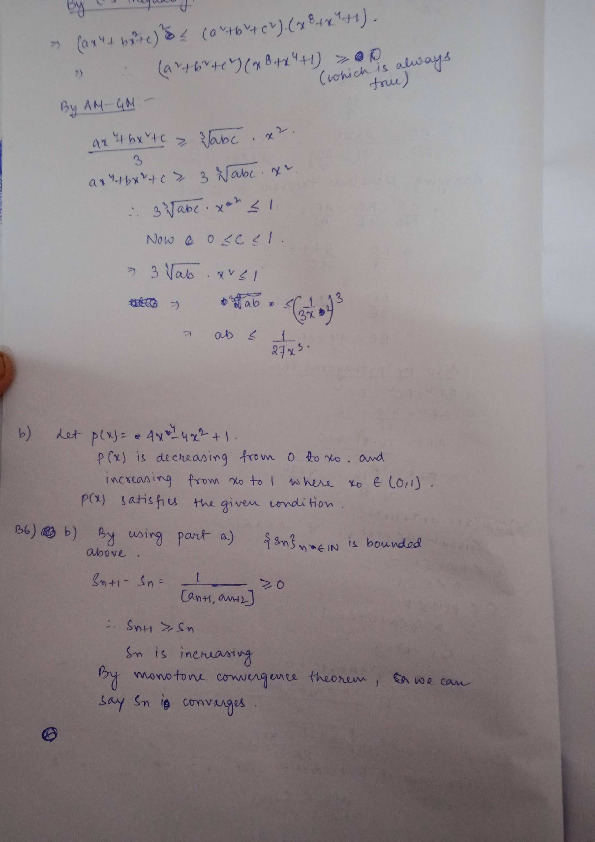 By C-S inequality.
⇒ (ax⁴ + bx²+c)² ≤ (a²+b²+c²).(x⁸+x⁴+1).
(a²+b²+c²)(x⁸+x⁴+1) ≥ 0
(which is always true)
By AM-GM -
ax⁴+bx²+c / 3 ≥ ∛abc . x²
ax⁴+bx²+c ≥ 3 ∛abc . x²
∴ 3∛abc . x² ≤ 1
Now 0 ≤ c ≤ 1.
⇒ 3 ∛ab . x² ≤ 1
⇒ ∛ab ≤ (1/3x²)³
⇒ ab ≤ 1/27x³.
b) Let p(x) = 4x⁴-4x²+1.
p(x) is decreasing from 0 to x₀. and
increasing from x₀ to 1 where x₀ ∈ (0,1).
p(x) satisfies the given condition.
B6) b) By using part a) {Sn}n∈IN is bounded
above.
Sn+1 - Sn = 1/[an+1, an+2] ≥ 0
∴ Sn+1 ≥ Sn
Sn is increasing
By monotone convergence theorem, we can
say Sn converges.